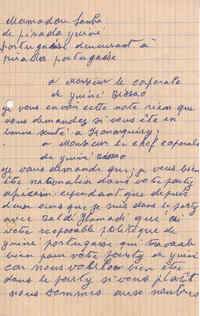 Mamadou Samba
de pirada guine
portugaisse demeurant à
pirada portugaisse
a Monsieur le caporate
de guiné Bissao
je vous envoi cette note rien que
vous demandez si vous ete en
bonne santé a konanquiry
a Monsieur le chef caporate
de guiné Bissao
je vous demande que je vous bien
ete nationalise dans votre party
africain. cependant que depuis
deux ans que je suis dans le party
avec Saldi Mamadi que ai
votre resposable politique de
guine portugaisse qui travail
bien pour votre party de guiné
car nous voblons bien ete
dans le party si vous plait
nous sommes aussi nombre